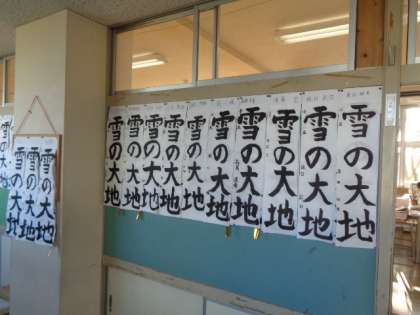 雪の大地
雪の大地
雪の大地
雪の大地
雪の大地
雪の大地
雪の大地
雪の大地
雪の大地
雪の大地
雪の大地
雪の大地
雪の大地